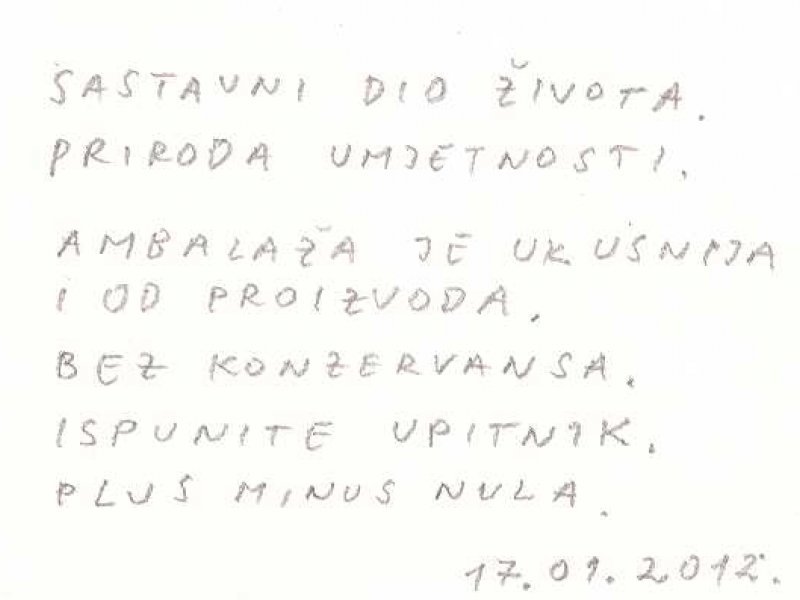 SASTAVNI DIO ŽIVOTA.
PRIRODA UMJETNOSTI.
AMBALAŽA JE UKUSNIJA
I OD PROIZVODA.
BEZ KONZERVANSA.
ISPUNITE UPITNIK.
PLUS MINUS NULA.
17.01.2012.